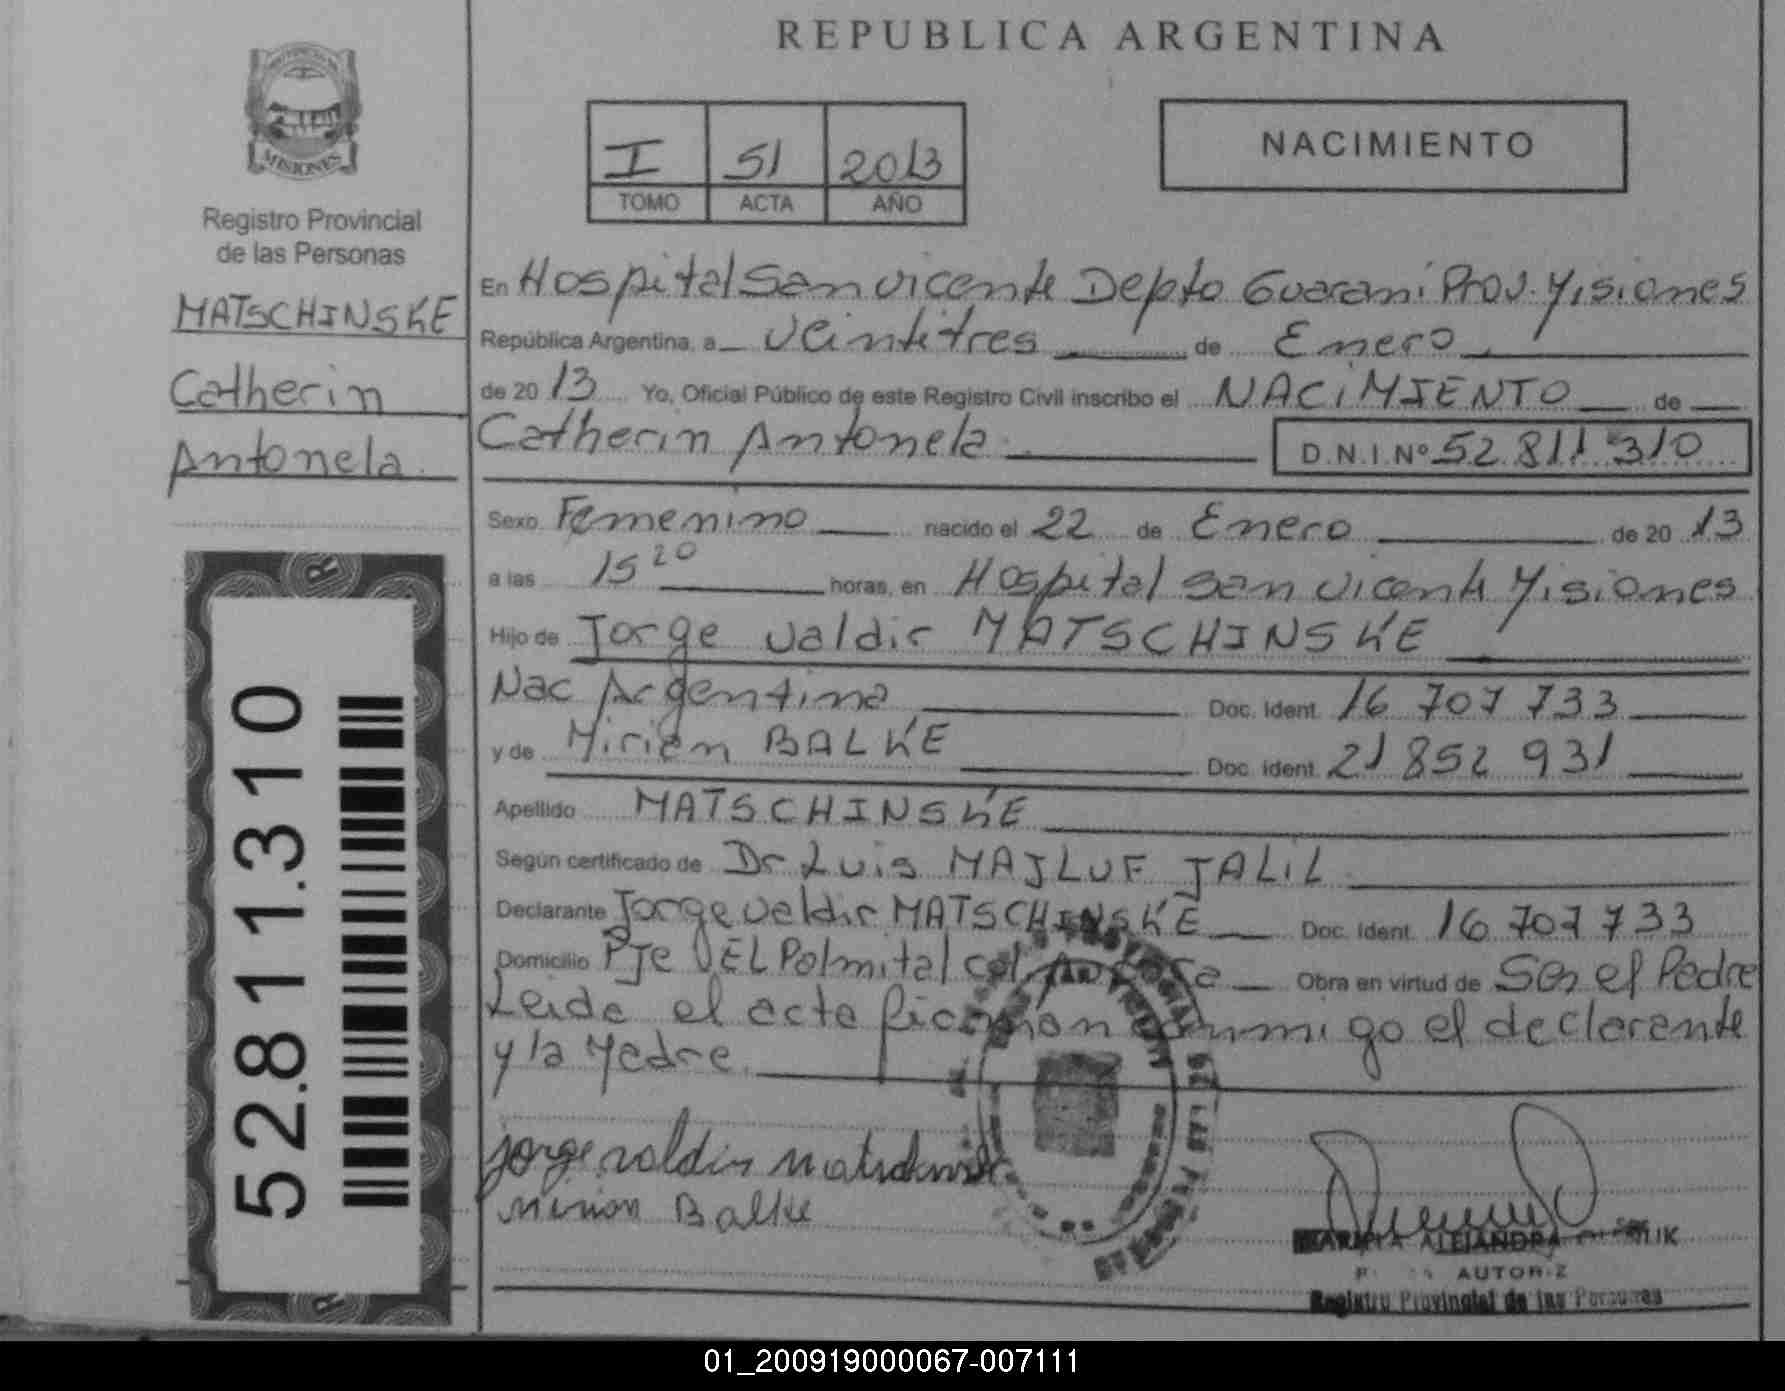 REPUBLICA ARGENTINA
MISIONES
Registro Provincial
de las Personas
MATSCHINSKE
Catherin
Antonela
52.811.310
I 51 2013
TOMO ACTA AÑO
NACIMIENTO
En Hospital San vicente Depto Guarani Prov. Misiones
República Argentina, a veintitres de Enero
de 2013 Yo, Oficial Público de este Registro Civil inscribo el NACIMIENTO de
Catherin Antonela D.N.I. Nº 52 811 310
Sexo Femenino nacido el 22 de Enero de 2013
a las 15 20 horas, en Hospital San vicente Misiones
Hijo de Jorge valdir MATSCHINSKE
Nac Argentina Doc. Ident. 16 707 733
y de Mirian BALKE Doc. Ident. 21 852 931
Apellido MATSCHINSKE
Según certificado de Dr Luis MAJLUF JALIL
Declarante Jorge valdir MATSCHINSKE Doc. Ident. 16 707 733
Domicilio Pje EL Palmital col. Obra en virtud de Ser el Padre
Leida el acta firman conmigo el declarante
y la Madre.
jorge valdir
Mirian Balke
ALEJANDRA
Registro Provincial de las Personas
01_200919000067-007111